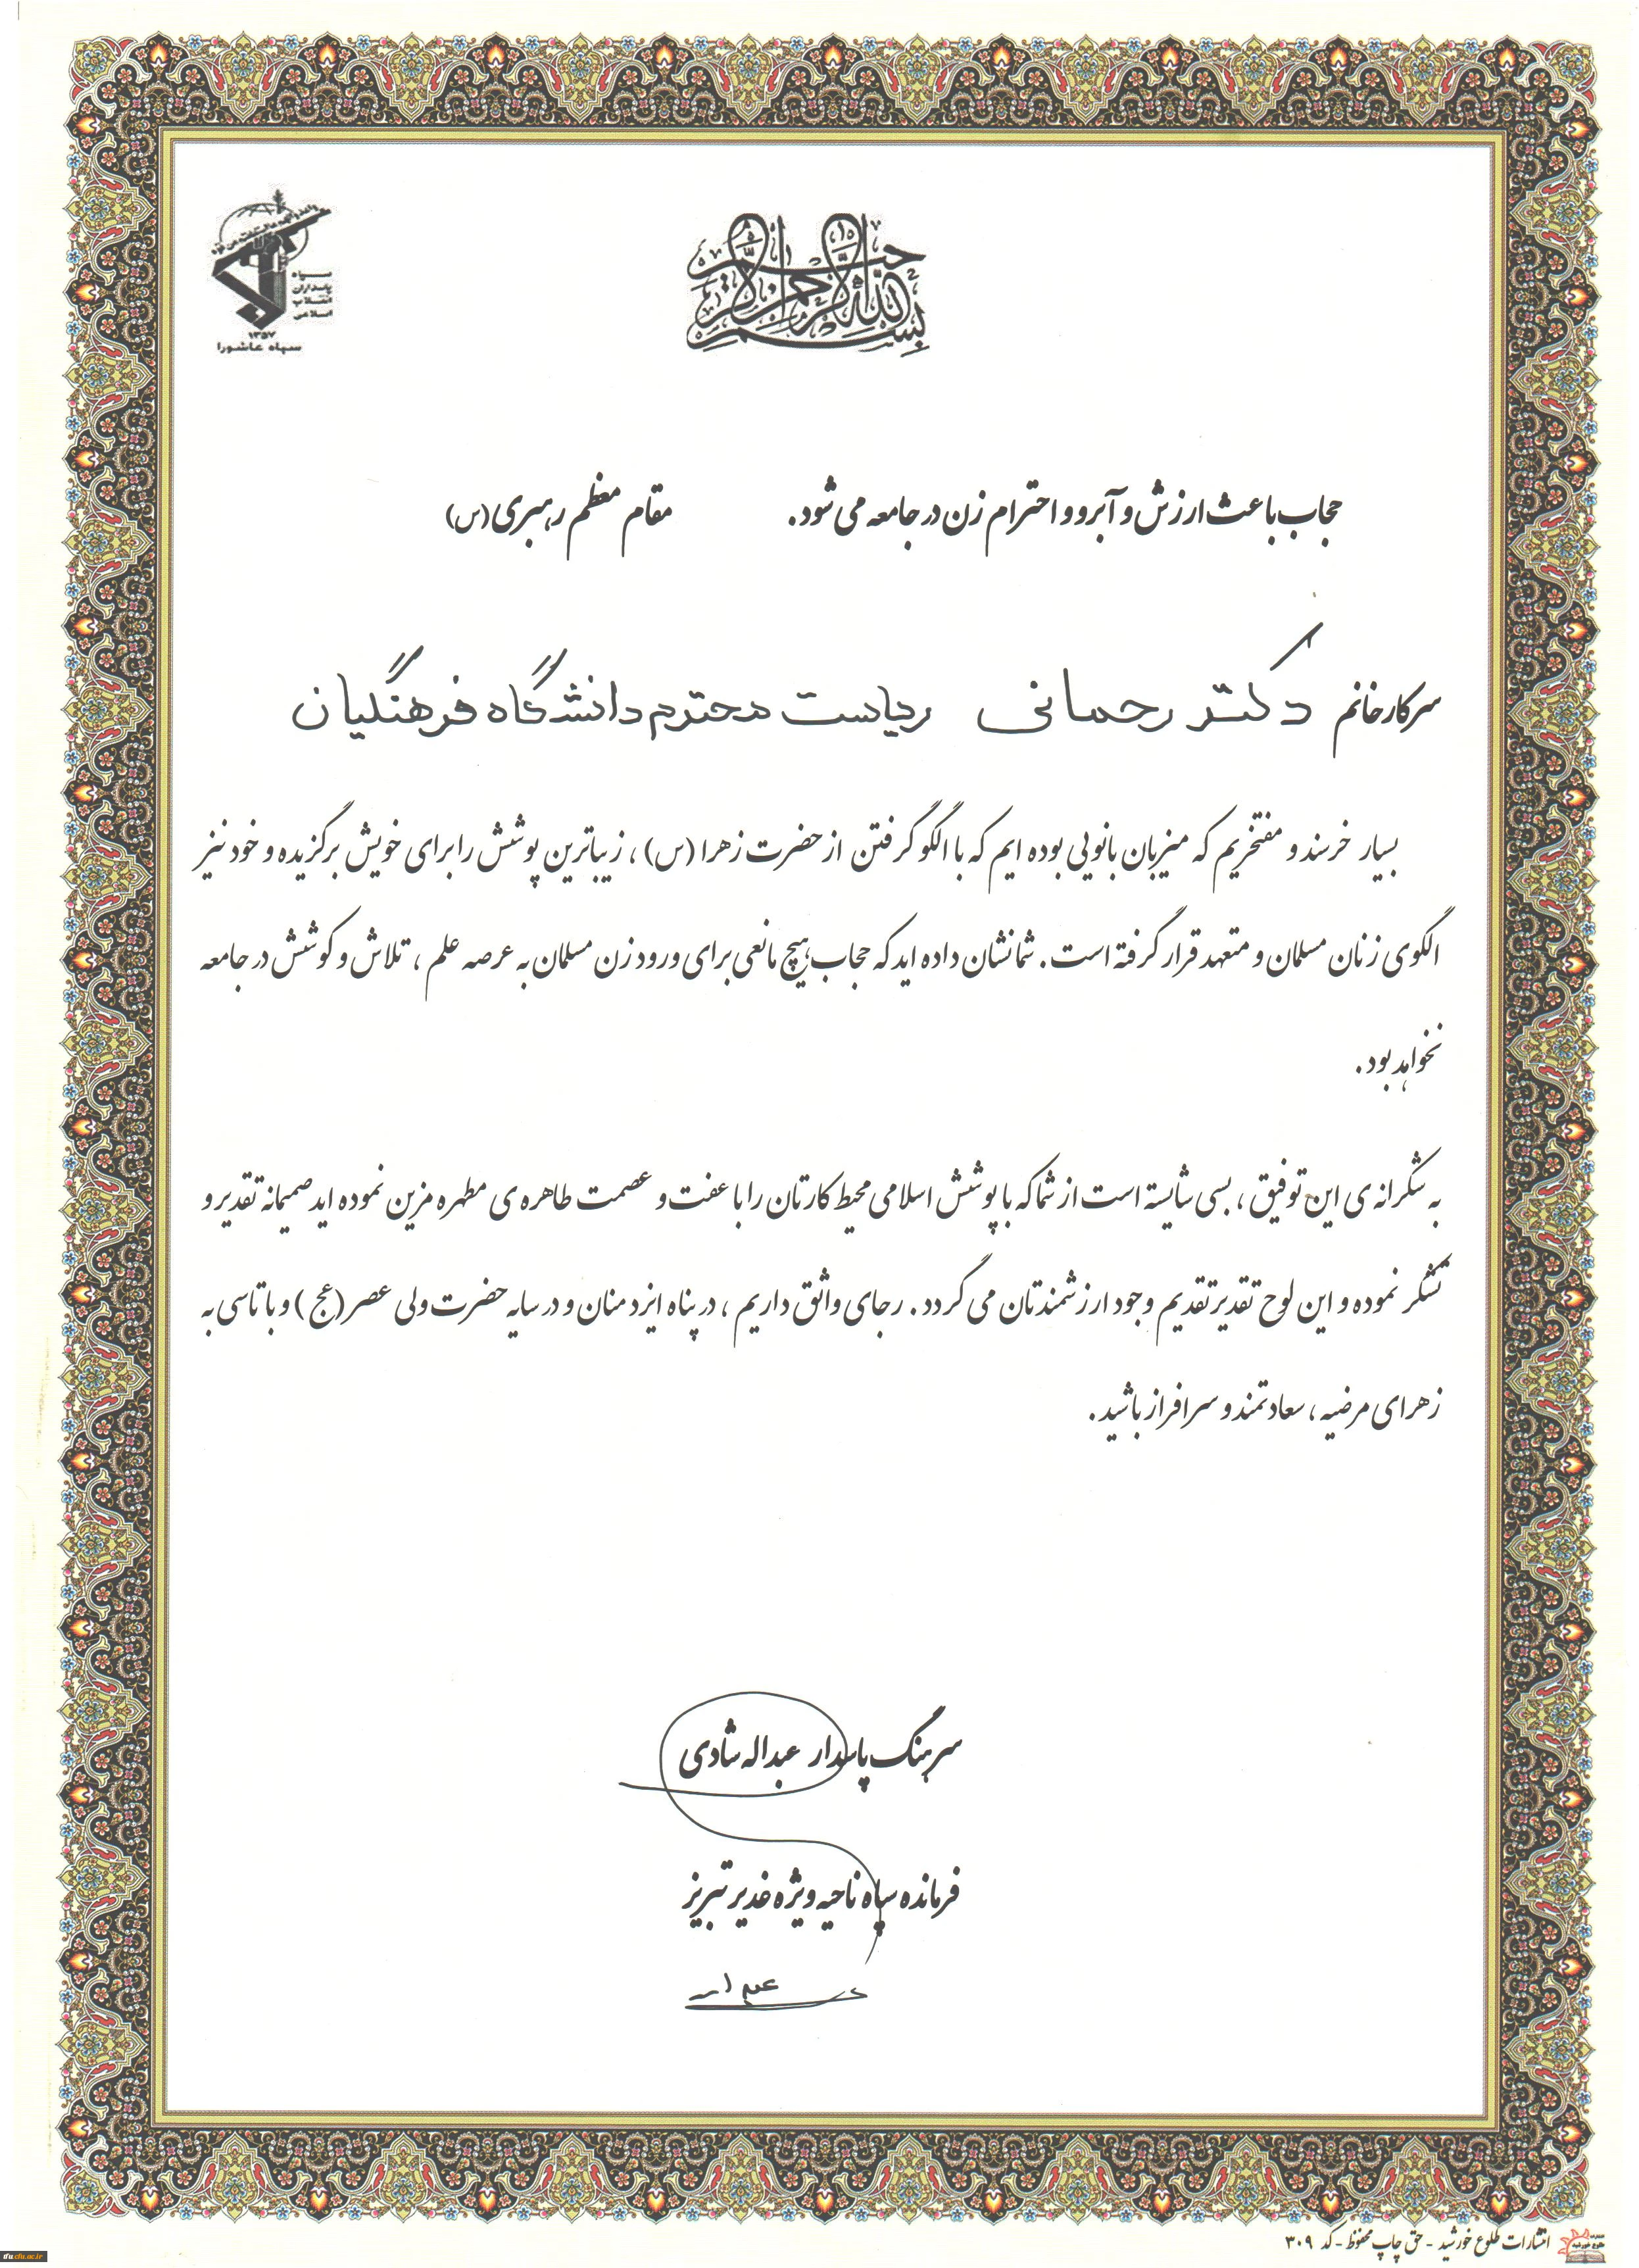 بسم الله الرحمن الرحیم
سپاه
پاسداران
انقلاب
اسلامی
۱۳۵۷
سپاه عاشورا
حجاب باعث ارزش و آبرو و احترام زن در جامعه می شود. مقام معظم رهبری (س)
سرکار خانم دکتر رحمانی ریاست محترم دانشگاه فرهنگیان
بسیار خرسند و مفتخریم که میزبان بانویی بوده ایم که با الگو گرفتن از حضرت زهرا (س) ، زیباترین پوشش را برای خویش برگزیده و خود نیز
الگوی زنان مسلمان و متعهد قرار گرفته است. شما نشان داده اید که حجاب هیچ مانعی برای ورود زن مسلمان به عرصه علم ، تلاش و کوشش در جامعه
نخواهد بود.
به شکرانه ی این توفیق ، بسی شایسته است از شما که با پوشش اسلامی محیط کارتان را با عفت و عصمت طاهره ی مطهره مزین نموده اید صمیمانه تقدیر و
تشکر نموده و این لوح تقدیر تقدیم وجود ارزشمندتان می گردد. رجای واثق داریم ، در پناه ایزد منان و در سایه حضرت ولی عصر (عج) و با تاسی به
زهرای مرضیه ، سعادتمند و سرافراز باشید.
سرهنگ پاسدار عبداله شادی
فرمانده سپاه ناحیه ویژه غدیر تبریز
انتشارات طلوع خورشید - حق چاپ محفوظ - کد ۳۰۹
ifu.cfu.ac.ir